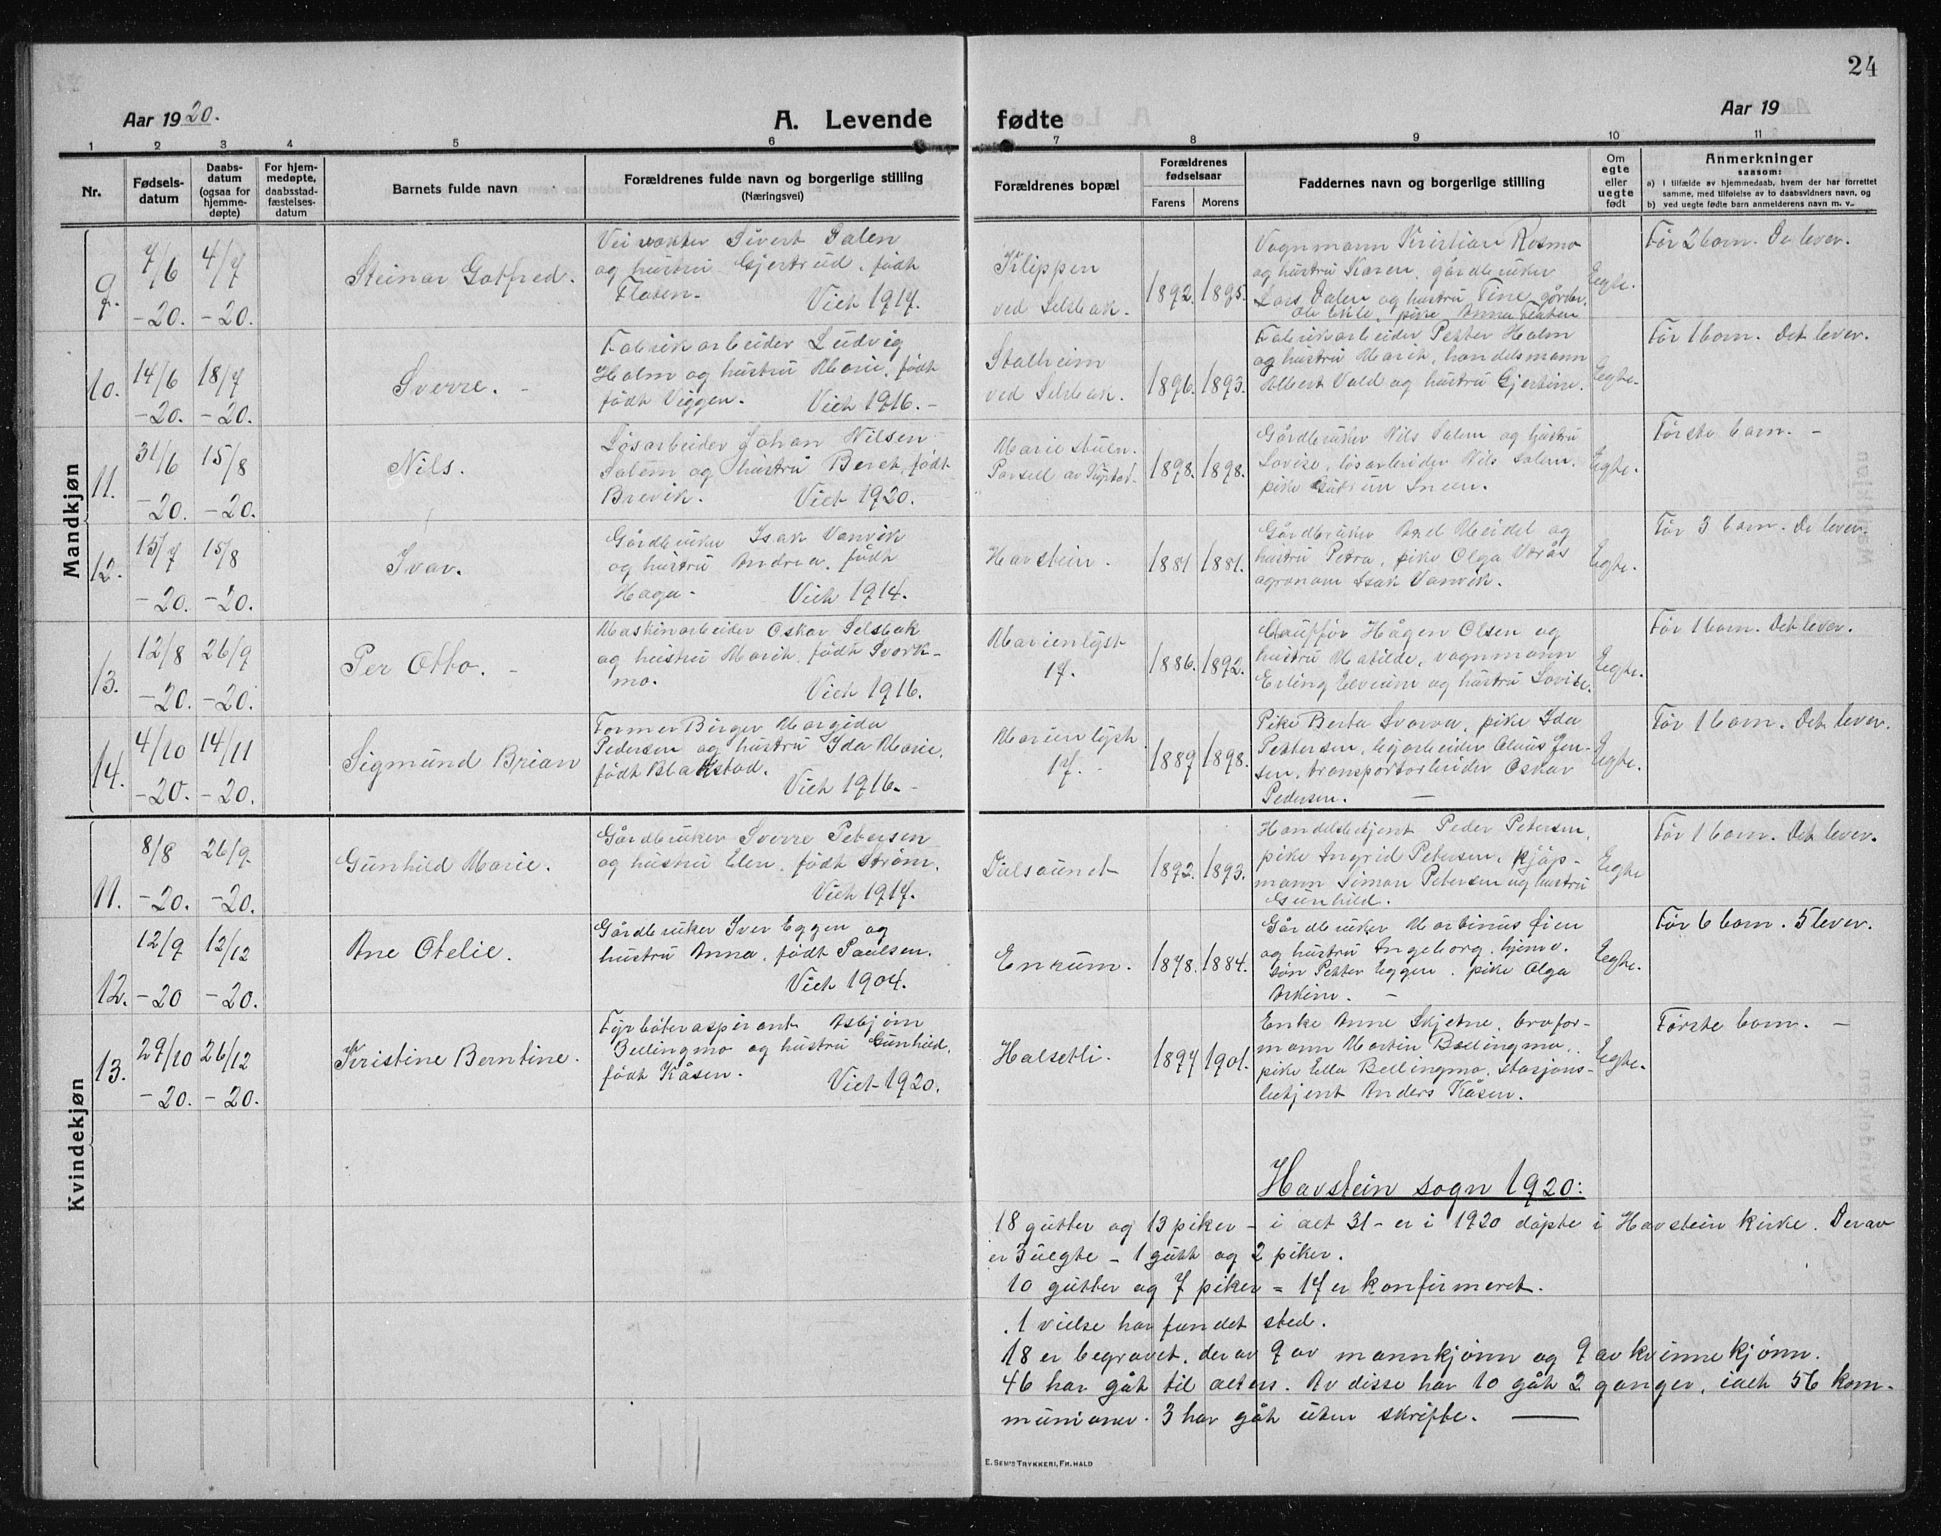 24
Aar 1920.
A. Levende fødte
Aar 19
1 2 3 4 5 6 7 8 9 10 11
Nr.
Fødsels-
datum
Daabs-
datum
(ogsaa for
hjemme-
døpte)
For hjem-
medøpte,
daabsstad-
fæstelses-
datum
Barnets fulde navn
Forældrenes fulde navn og borgerlige stilling
(Næringsvei)
Forældrenes bopæl
Forældrenes
fødselsaar
Farens Morens
Faddernes navn og borgerlige stilling
Om
egte
eller
uegte
født
Anmerkninger
saasom:
a) I tilfælde av hjemmedaab, hvem der har forrettet
samme, med tilføielse av to daabsvidners navn, og
b) ved uegte fødte barn anmelderens navn m. v.
Mandkjøn
9.
7/6
-20.
4/7
-20.
Steinar Gotfred.
Sivert Dalen
og hustru Gjertrud, født
Flaten. Viet 1917.
Klippen
ved Selsbak.
1892. 1895.
Vognmann Kristian Rosmo
og hustru Karen, gårdbruker
Lars Dalen og hustru Tine, gårdbr.
pike Anna Flaten
Egte.
Før 2 barn. De lever.
10.
14/6
-20.
18/7
-20.
Sverre. -
Fabrikarbeider Ludvig
Holm og hustru Marie, født
født Viggen. Viet 1916. -
Stalheim
ved Selsbak.
1896. 1893.
Fabrikarbeider Petter Holm
og hustru Marit, handelsmann
Albert Vold og hustru Gjertine.
Egte.
Før 1 barn. Det lever.
11.
31/6
-20.
15/8
-20.
Nils.
Løsarbeider Johan Nilsen
Salem og hustru Beret, født
Brevik. Viet 1920.
Marie
Parsell av
1898. 1898.
Gårdbruker Nils Salem og hustru
Lovise, løsarbeider Nils Salem,
pike Gudrun Sneen.
Egte.
Første barn. -
12.
15/7
-20.
15/8
-20.
Ivar.
Gårdbruker Isak Vanvik
og hustru Andrea, født
Haga - Viet 1914.
Havstein.
1881 1881.
Gårdbruker Axel Meidel og
hustru Petra, pike Olga Værås
agronom Isak Vanvik.
Egte.
Før 3 barn. De lever.
13.
12/8
-20.
26/9
-20.
Per Otto. -
Maskinarbeider Oskar Selsbak
og hustru Marit, født Svork-
mo. Viet 1916.
Marienlyst
17.
1886. 1892.
Chauffør Hågen Olsen og
hustru Matilde, vognmann
Erling Elveum og hustru Lovise.
Egte.
Før 1 barn. Det lever.
14.
4/10
-20.
14/11
-20.
Sigmund Brian
Former Birger Margido
Pedersen og hustru Ida Marie,
født Blakstad.
Viet 1916. -
Marienlyst
17. -
1889 1898.
Pike Berta Svorva, pike Ida
Pettersen, Claus Jen-
sen, transportarbeider Oskar
Pedersen. -
Egte.
Før 1 barn. Det lever.
Kvindekjøn
11.
8/8
-20.
26/9.
-20.
Gunhild Marie.
Gårdbruker Sverre Petersen
og hustru Elen, født Strøm.
Viet 1917.
Dalsaunet
1892. 1893.
Handelsbetjent Peder Petersen,
pike Ingrid Petersen, kjøp-
mann Simon Petersen og hustru
Gunhild.
Egte
Før 1 barn. Det lever.
12.
12/9
-20
12/12
-20.
Ane Otelie.
Gårdbruker Iver Eggen og
hustru Anna, født Paulsen.
Viet 1904.
Enrum.
1878. 1884.
Gårdbruker Martinus Øien
og hustru Ingeborg, hjemv.
søn Petter Eggen, pike Olga
-
Egte.
Før 6 barn. 5 lever.
13.
29/10
-20.
26/12
-20.
Kristine Berntine.
Fyrbøteraspirant Asbjørn
Bellingmo og hustru Gunhild,
født Kåsen.
Viet 1920.
Halsetli.
1897 1901.
Enke Anne Skjetne, brofor-
mann Martin Bellingmo,
pike Ella Bellingmo, stasjons-
betjent Anders Kåsen.
Egte.
Første barn. -
Havstein sogn 1920:
18 gutter og 13 piker - i alt 31 - er i 1920 døpte i Havstein kirke. Derav
er 3 uegte - 1 gutt og 2 piker.
10 gutter og 7 piker = 17 er konfirmeret.
1 vielse har fundet sted.
18 er begravet, derav 9 av mannkjønn og 9 av kvinnekjønn.
46 har gåt til alters. Av disse har 10 gåt 2 ganger, ialt 56 kom-
munioner. 3 har gåt uten skrifte. -
E. Sem's Trykkeri, Fr.hald